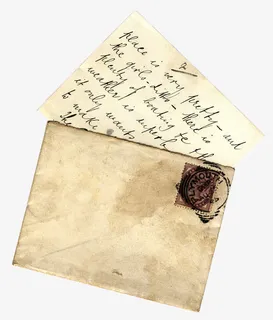 2
place is very pretty - and
the girls - ditto - there is
plenty of boating te
weather is superb
it only wants
to make
The